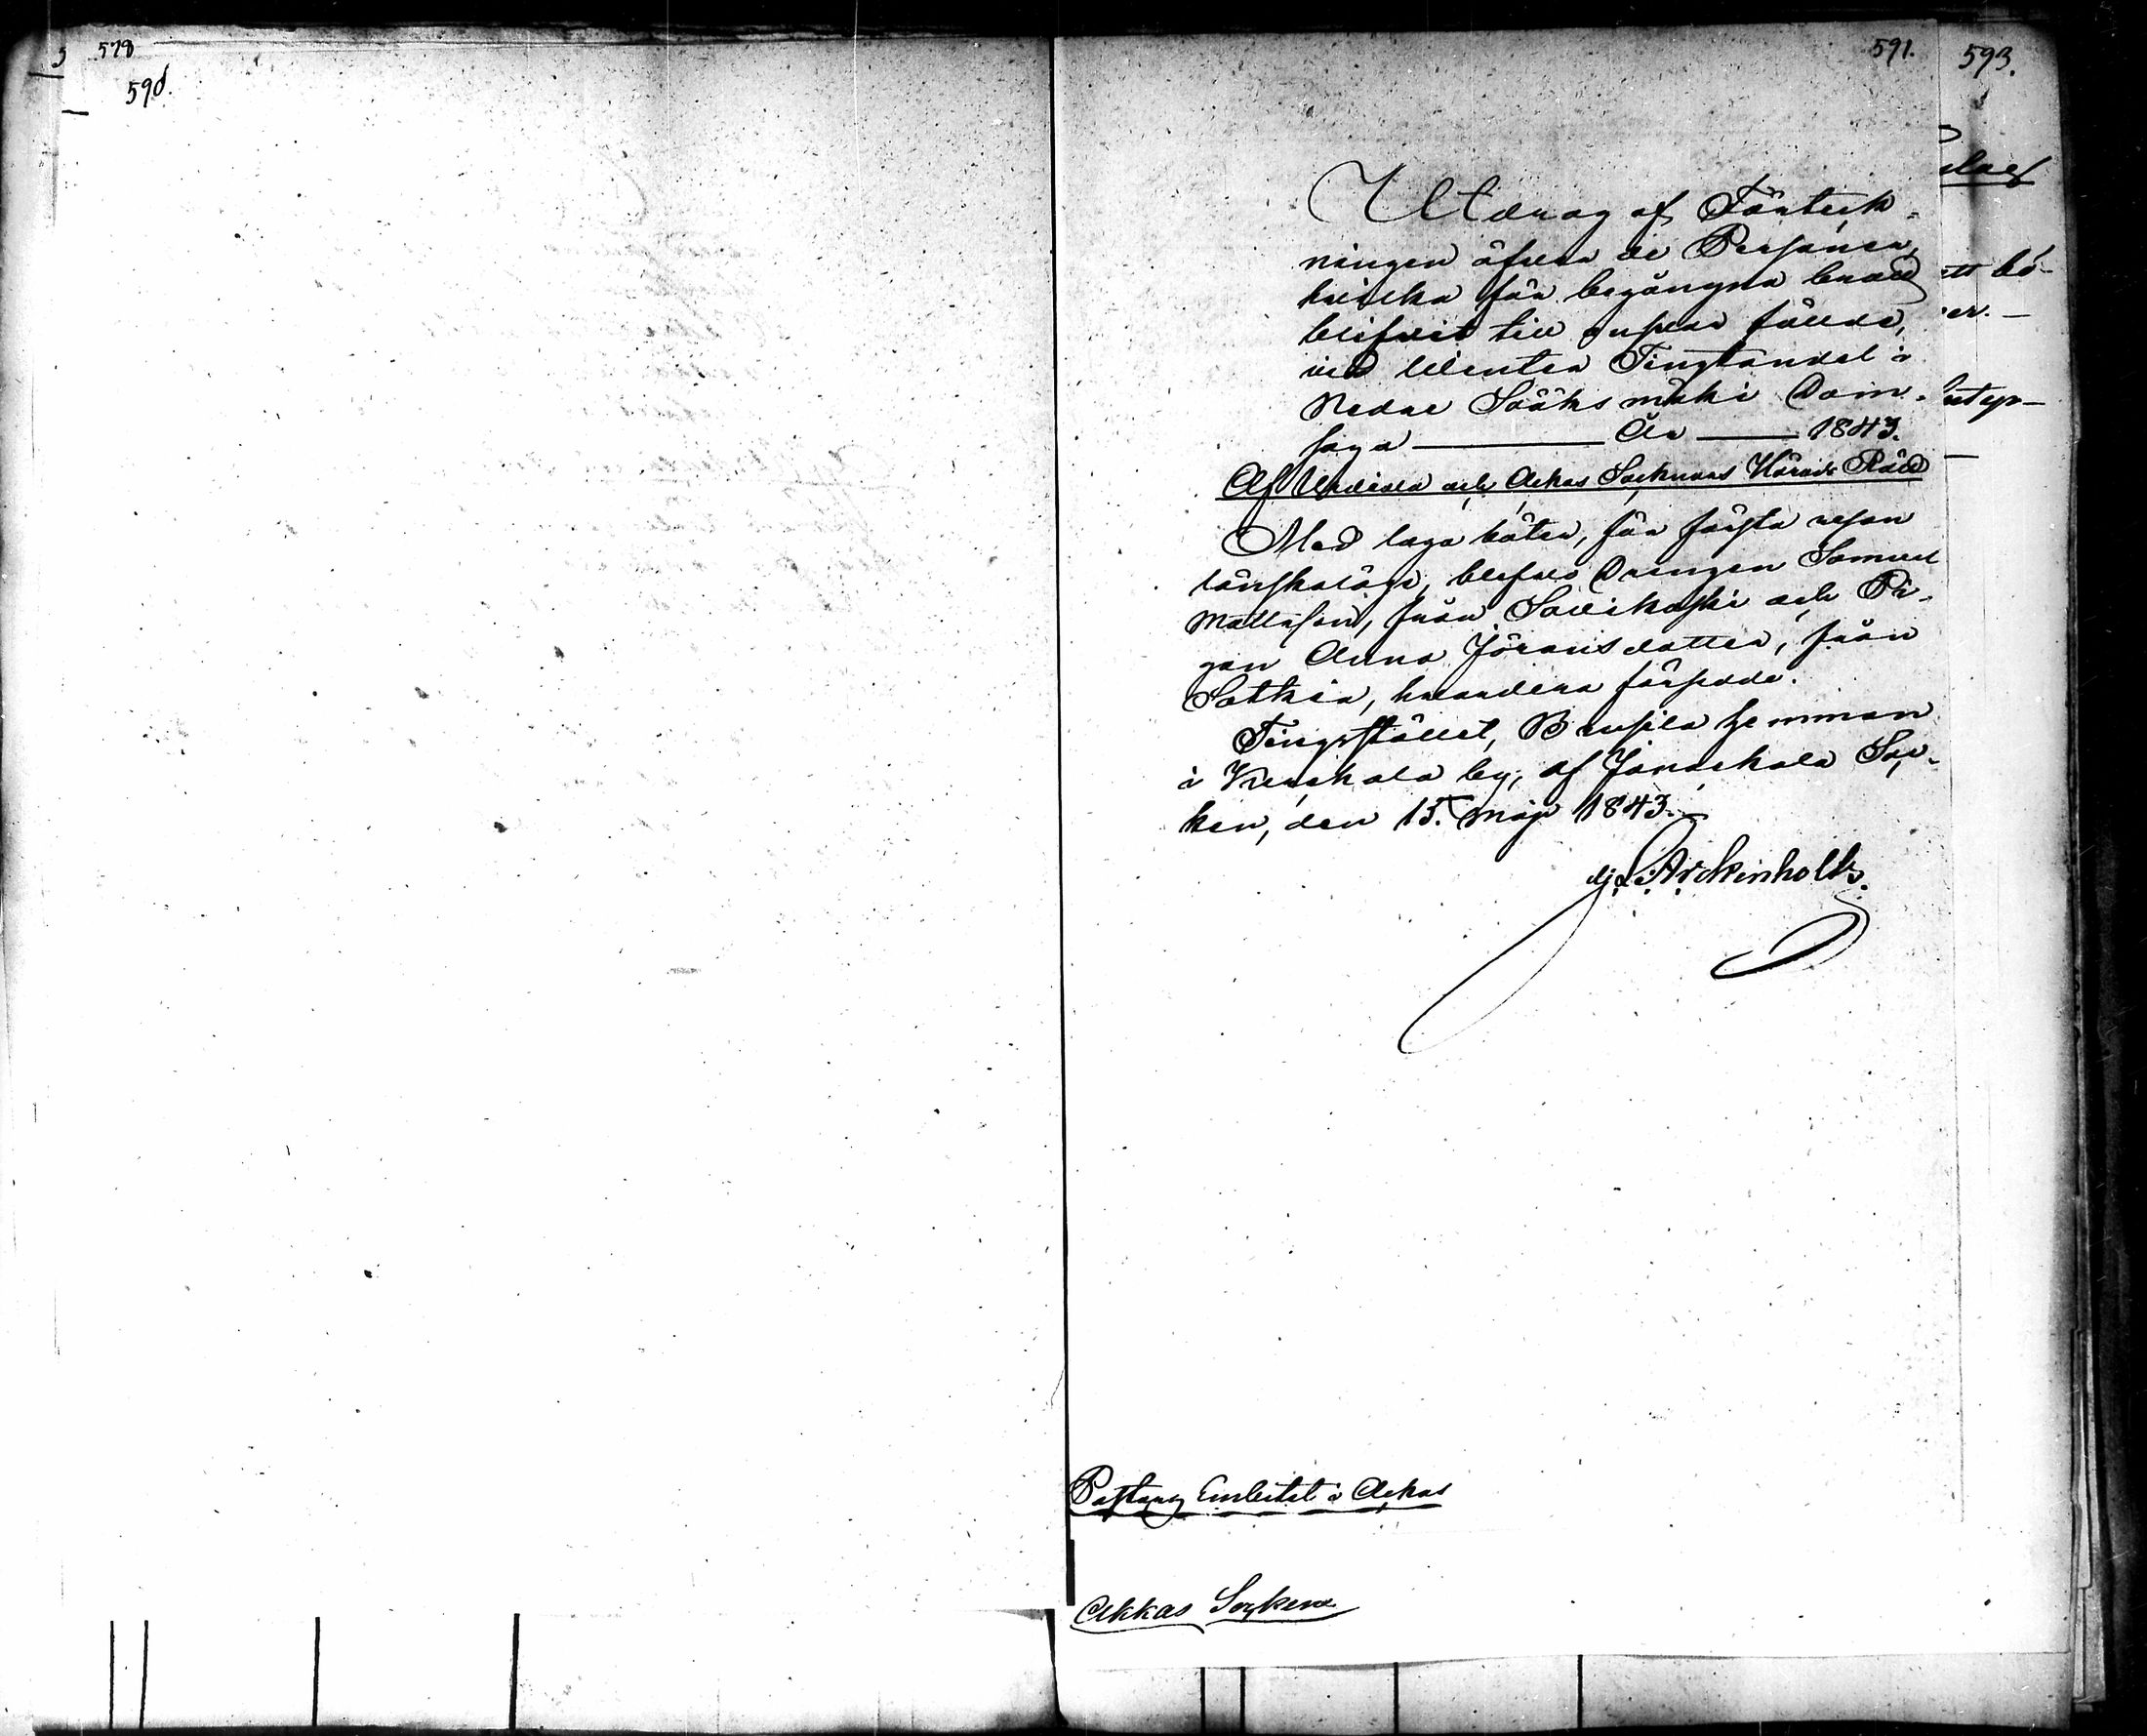 578
590.
591.
Utdrag af Förteck-
ningen öfver de Personer,
hvilka för begångna brott
blifvit till ansvar fällde,
vid Winter Tingtöndel i
Nedre Sääksmäki Dom-
saga År 1843.
Af Urdiala och Ackas Socknars Härads Rätt
Med laga böter, för första resan
lönskaläge, blefvo Drengen Samuel
Mattsson, från Savikoski och Pi-
gan Anna Jöransdotter, från
Sotkia, hvardera försedde.
Tingsstället, Brusila hemman
i Kurikala by, af Janackala Soc-
ken, den 15. Maji 1843.
Arckenholtz.
Pastors Embetet i Ackas
Akkas Socken
593.
ett bö-
er.